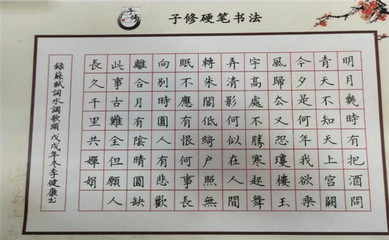 子修硬笔书法
明月幾時有把酒問
青天不知天上宮闕
今夕是何年我欲乘
風歸去又恐瓊樓玉
宇高處不勝寒起舞
弄清影何似在人間
轉朱閣低綺戶照無
眠不應有恨何事長
向別時圓人有悲歡
離合月有陰晴圓缺
此事古難全但願人
長久千里共嬋娟
錄蘇軾詞水調歌頭戊戌年冬李健康书